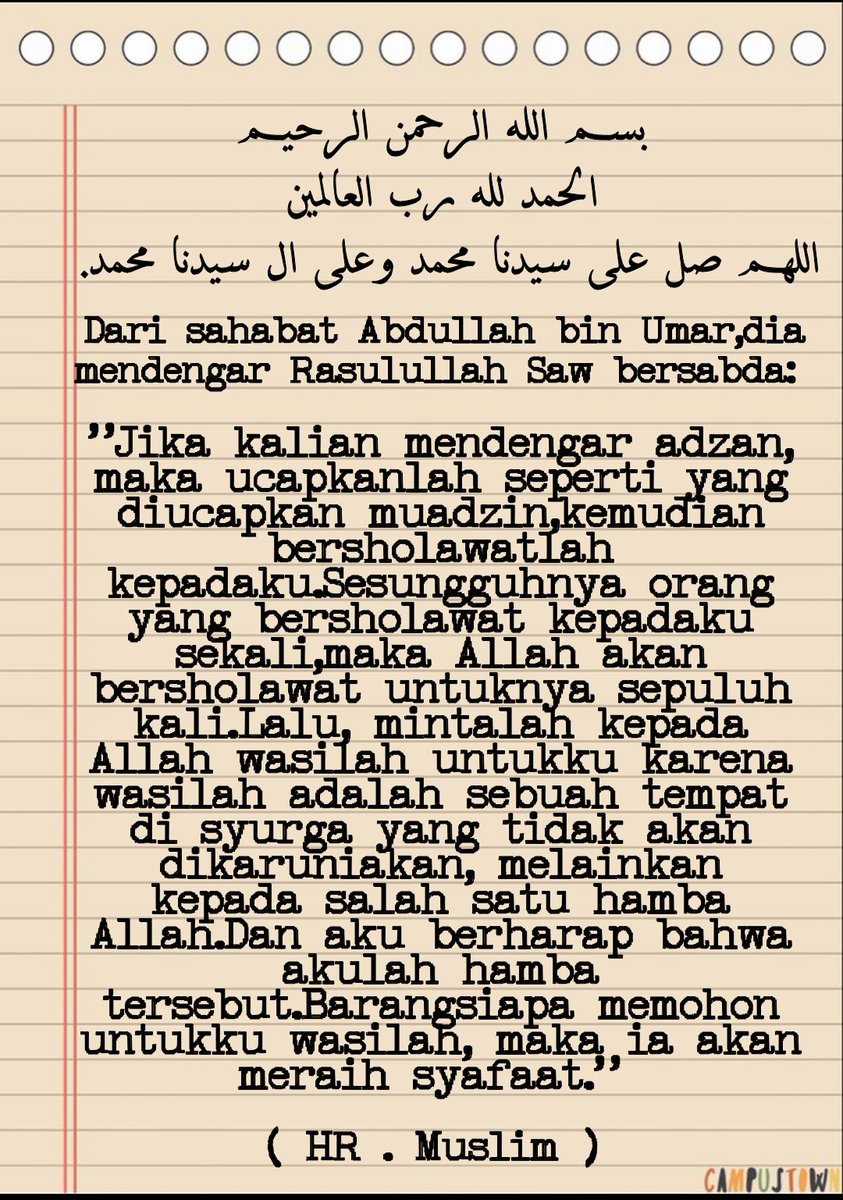 بسم الله الرحمن الرحيم
الحمد لله رب العالمين
اللهم صل على سيدنا محمد وعلى ال سيدنا محمد.
Dari sahabat Abdullah bin Umar,dia
mendengar Rasulullah Saw bersabda:
"Jika kalian mendengar adzan,
maka ucapkanlah seperti yang
diucapkan muadzin,kemudian
bersholawatlah
kepadaku.Sesungguhnya orang
yang bersholawat kepadaku
sekali,maka Allah akan
bersholawat untuknya sepuluh
kali.Lalu, mintalah kepada
Allah wasilah untukku karena
wasilah adalah sebuah tempat
di syurga yang tidak akan
dikaruniakan, melainkan
kepada salah satu hamba
Allah.Dan aku berharap bahwa
akulah hamba
tersebut.Barangsiapa memohon
untukku wasilah, maka ia akan
meraih syafaat."
( HR . Muslim )
CAMPUSTOWN